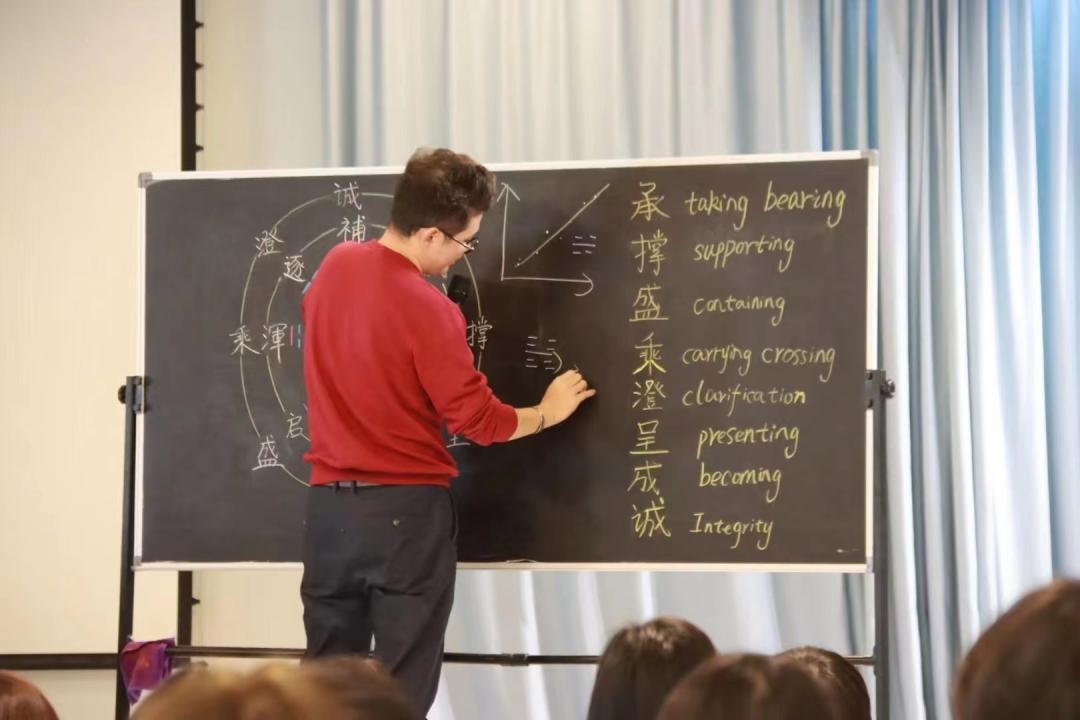 誠
補
澄
逐
乘 渾
启
盛
撑
承 taking bearing
撑 supporting
盛 containing
乘 carrying crossing
澄 clarification
呈 presenting
成 becoming
诚 Integrity